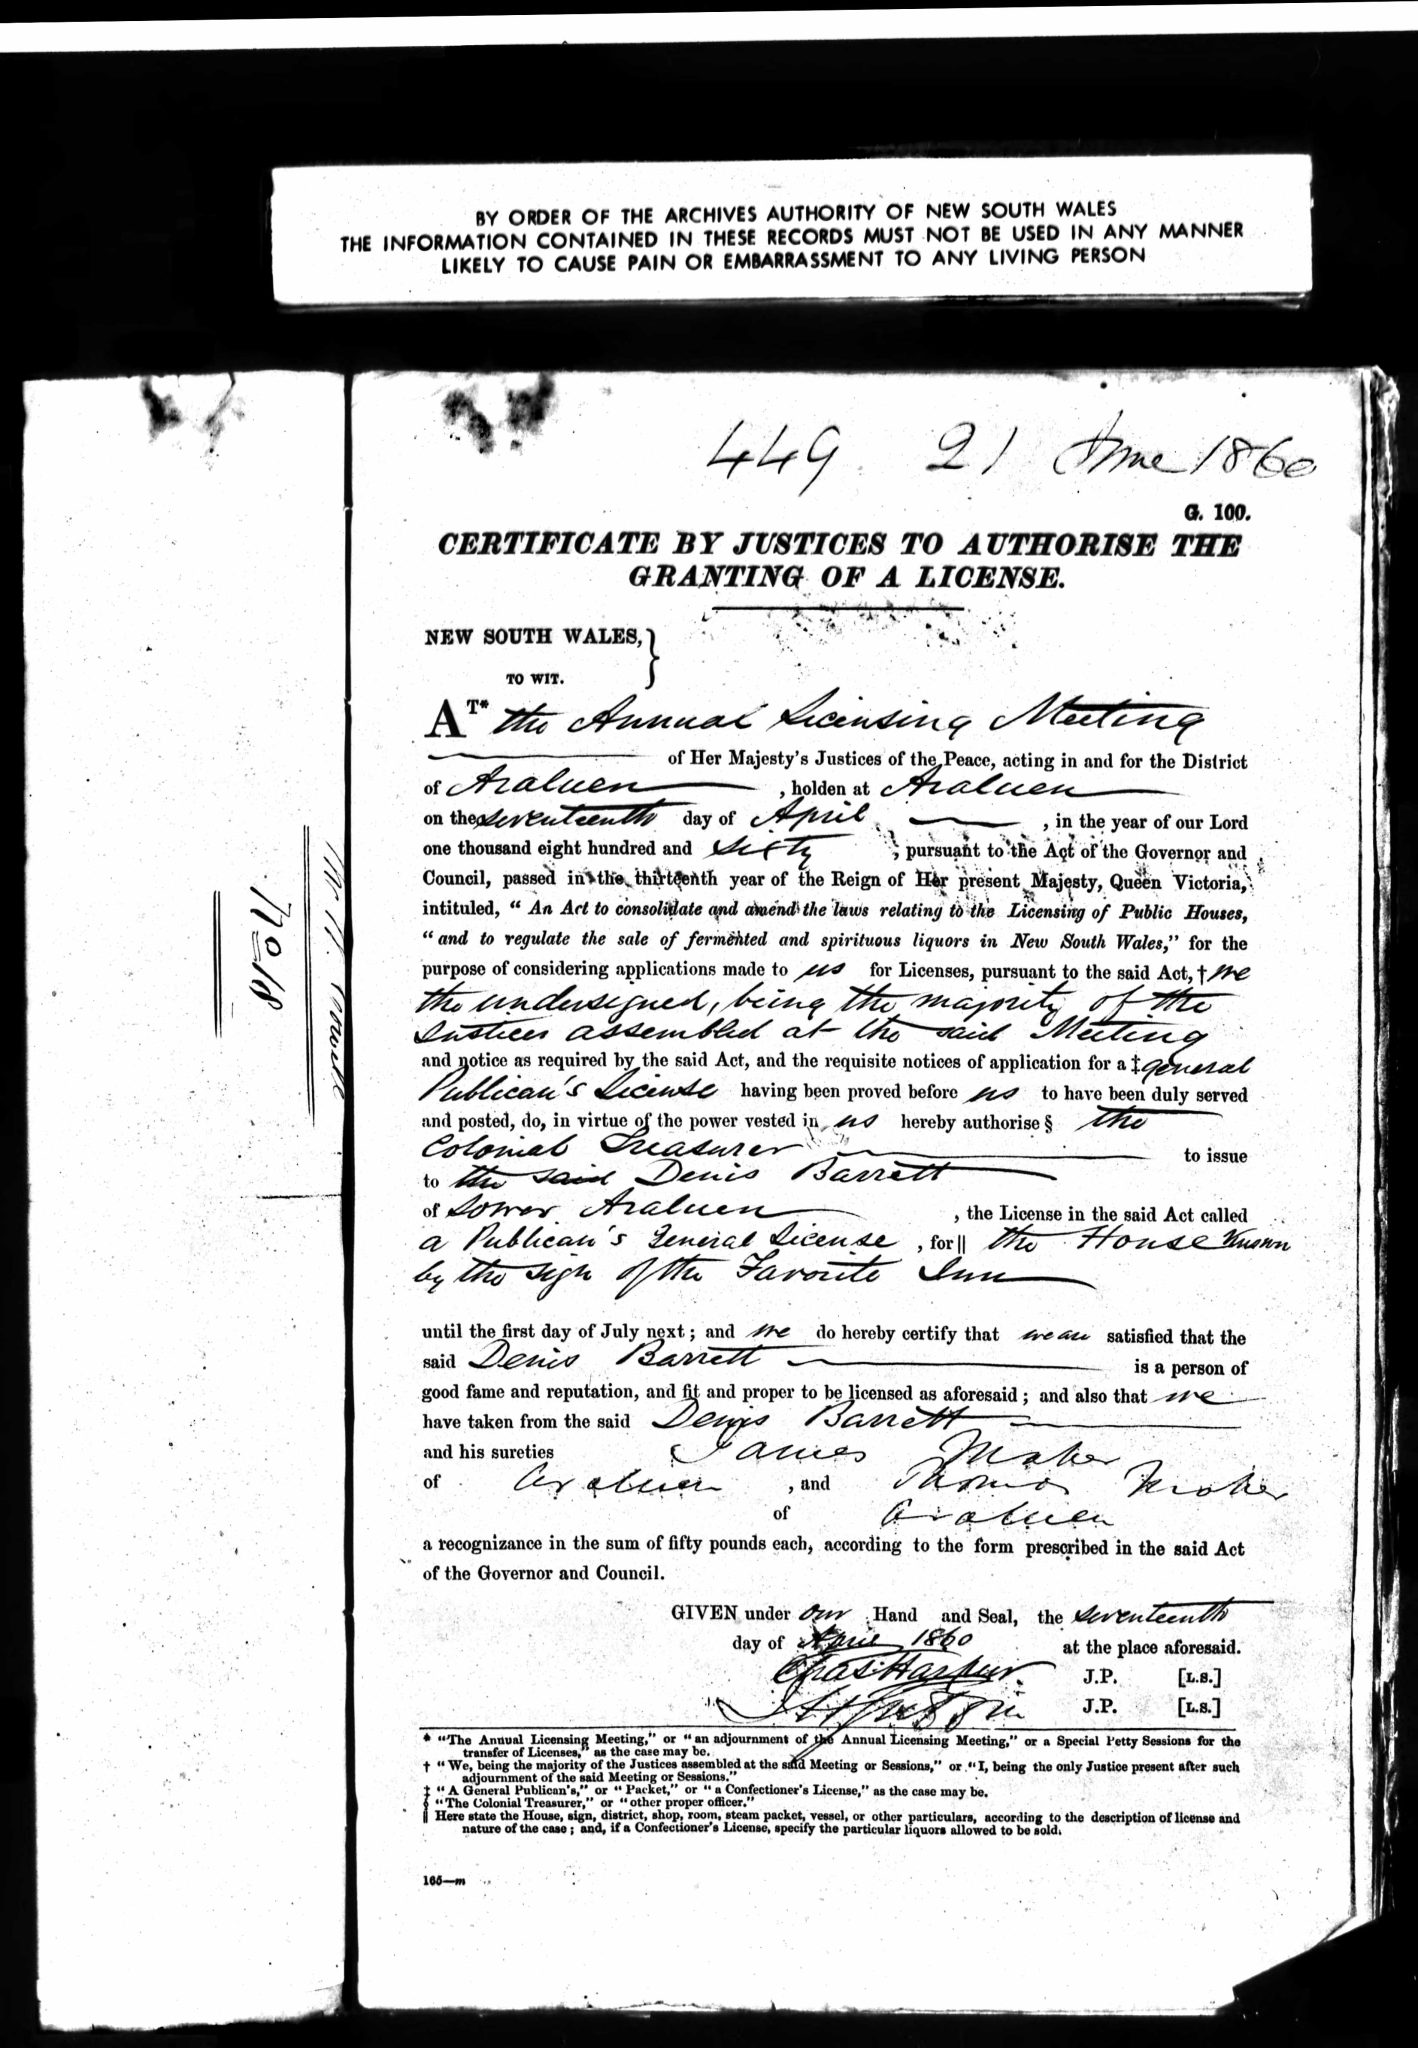 BY ORDER OF THE ARCHIVES AUTHORITY OF NEW SOUTH WALES
THE INFORMATION CONTAINED IN THESE RECORDS MUST NOT BE USED IN ANY MANNER
LIKELY TO CAUSE PAIN OR EMBARRASSMENT TO ANY LIVING PERSON
449 21 June 1860
G. 100.
CERTIFICATE BY JUSTICES TO AUTHORISE THE
GRANTING OF A LICENSE.
NEW SOUTH WALES,
TO WIT.
AT* the Annual Licensing Meeting
of Her Majesty's Justices of the Peace, acting in and for the District
of Araluen, holden at Araluen
on the seventeenth day of April, in the year of our Lord
one thousand eight hundred and sixty, pursuant to the Act of the Governor and
Council, passed in the thirteenth year of the Reign of Her present Majesty, Queen Victoria,
intituled, "An Act to consolidate and amend the laws relating to the Licensing of Public Houses,
"and to regulate the sale of fermented and spirituous liquors in New South Wales," for the
purpose of considering applications made to us for Licenses, pursuant to the said Act, † we
the undersigned, being the majority of the
Justices assembled at the said Meeting
and notice as required by the said Act, and the requisite notices of application for a ‡ general
Publican's License having been proved before us to have been duly served
and posted, do, in virtue of the power vested in us hereby authorise § the
Colonial Treasurer to issue
to the said Denis Barrett
of Lower Araluen, the License in the said Act called
a Publican's General License, for || the House Known
by the sign of the Favorite Inn
until the first day of July next; and we do hereby certify that we are satisfied that the
said Denis Barrett is a person of
good fame and reputation, and fit and proper to be licensed as aforesaid; and also that we
have taken from the said Denis Barrett
and his sureties James Maher
of Araluen, and Thomas Maher
of Araluen
a recognizance in the sum of fifty pounds each, according to the form prescribed in the said Act
of the Governor and Council.
GIVEN under our Hand and Seal, the seventeenth
day of April 1860 at the place aforesaid.
Chas Harpur J.P. [L.S.]
J.P. [L.S.]
* "The Annual Licensing Meeting," or "an adjournment of the Annual Licensing Meeting," or a Special Petty Sessions for the
transfer of Licenses," as the case may be.
† "We, being the majority of the Justices assembled at the said Meeting or Sessions," or "I, being the only Justice present after such
adjournment of the said Meeting or Sessions."
‡ "A General Publican's," or "Packet," or "a Confectioner's License," as the case may be.
§ "The Colonial Treasurer," or "other proper officer."
|| Here state the House, sign, district, shop, room, steam packet, vessel, or other particulars, according to the description of license and
nature of the case; and, if a Confectioner's License, specify the particular liquors allowed to be sold.
165—m
No 18